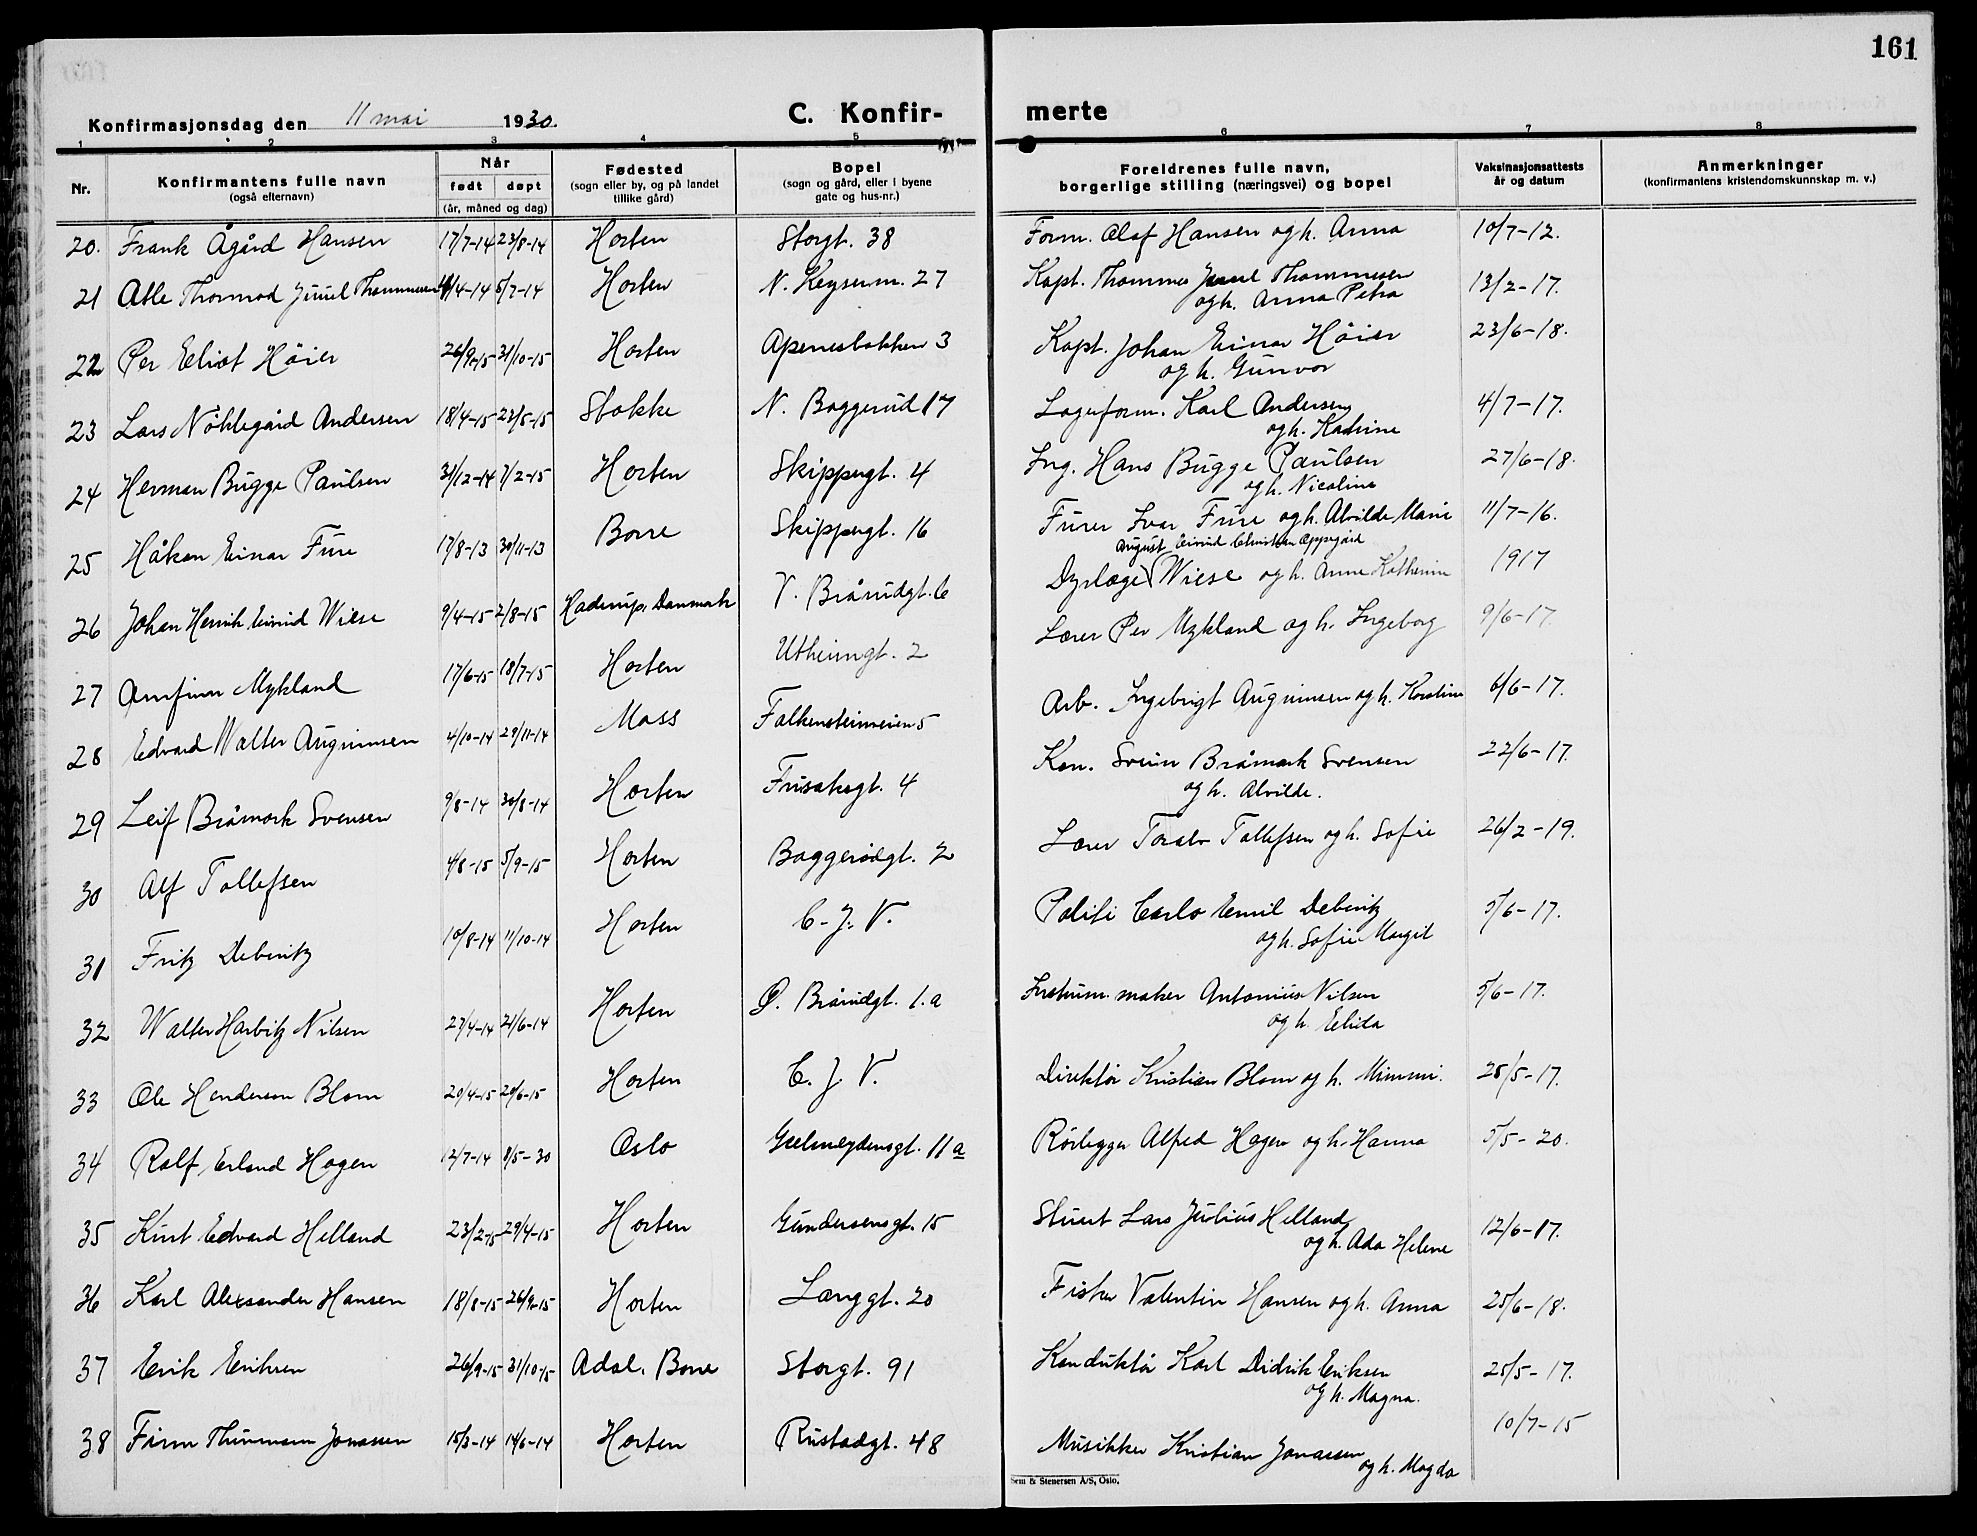 161
Konfirmasjonsdag den 11 mai 1930.
C. Konfir-
merte
1 2 3 4 5 6 7 8
Nr.
Konfirmantens fulle navn
(også efternavn)
Når
født døpt
(år, måned og dag)
Fødested
(sogn eller by, og på landet
tillike gård)
Bopel
(sogn og gård, eller i byene
gate og hus-nr.)
Foreldrenes fulle navn,
borgerlige stilling (næringsvei) og bopel
Vaksinasjonsattests
år og datum
Anmerkninger
(konfirmantens kristendomskunnskap m. v.)
20. Frank Ågård Hansen 17/7-14 23/8-14 Horten Storgt. 38 Form. Olaf Hansen og h. Anna 10/7-12.
21 Atle Thormod Juul Thommesen /4-14 5/7-14 Horten N. Keyserm. 27 Kapt. Thommes Juul Thommesen 13/2-17.
og h. Anna Petra
22 Per Eliot Höier 26/9-15 31/10-15 Horten Apenesbakken 3 Kapt. Johan Einar Höier 23/6-18.
og h. Gunvor
23 Lars Nöhlegård Andersen 18/4-15 23/5-15 Stokke N. Baggerud 17 Lagerform. Karl Andersen 4/7-17.
og h. Katrine
24 Herman Bugge Paulsen 31/12-14 7/2-15 Horten Skippergt. 4 Ing. Hans Bugge Paulsen 27/6-18.
og h. Nicoline
25 Håkon Einar Fure 17/8-13 30/11-13 Borre Skippergt. 16 Furer Ivar Fure og h. Alvilde Marie 11/7-16.
August Eivind Christian Oppegård
26 Johan Henrik Eivind Wiese 9/4-15 2/8-15 Haderup, Danmark V. Brårudgt. 6 Dyrlæge Wiese og h. Anne Katherine 1917
27 Arnfinn Mykland 17/6-15 18/7-15 Horten Utheimgt. 2 Lærer Per Mykland og h. Ingeborg 9/6-17.
28 Edvard Walter Augunnsen 4/10-14 29/11-14 Moss Falkensteinveien 5 Arb. Ingebrigt Augunnsen og h. Karoline 6/6-17.
29 Leif Bråmark Svensen 9/8-14 30/8-14 Horten Frisaksgt. 4 Kan. Svein Bråmark Svensen 22/6-17.
og h. Alvilde.
30 Alf Tollefsen 4/8-15 5/9-15 Horten Baggerødgt. 2 Lærer Toralv Tollefsen og h. Sofie 26/2-19.
31 Fritz Deberitz 10/8-14 11/10-14 Horten C. J. V. Politi Carlo Emil Deberitz 5/6-17.
og h. Sofie Margit
32 Walter Harbitz Nilsen 27/4-14 21/6-14 Horten Ø. Brårudgt. 1.a Instrum. maker Antonius Nilsen 5/6-17.
og h. Elida
33 Ole Henderson Blom 20/4-15 20/6-15 Horten C. J. V. Direktör Kristian Blom og h. Mimmi. 25/5-17.
34 Rolf Erland Hagen 12/7-14 8/5-30 Oslo Gjelmeydensgt. 11a Rörlegger Alfred Hagen og h. Hanna 5/5-20.
35 Kurt Edvard Helland 23/2-15 29/4-15 Horten Gundersensgt. 15 Stuert Lars Julius Helland 12/6-17.
og h. Ada Helene
36 Karl Alexsander Hansen 18/8-15 26/9-15 Horten Langgt. 20 Fisker Valentin Hansen og h. Anna 25/6-18.
37 Erik Eriksen 26/9-15 31/10-15 Adal, Borre Storgt. 91 Konduktör Karl Didrik Eriksen 25/5-17.
og h. Magna.
38 Finn Thunmann Jonassen 15/3-14 14/6-14 Horten Rustadgt. 48 Musikker Kristian Jonassen 10/7-15
og h. Magda
Sem & Stenersen A/S, Oslo.